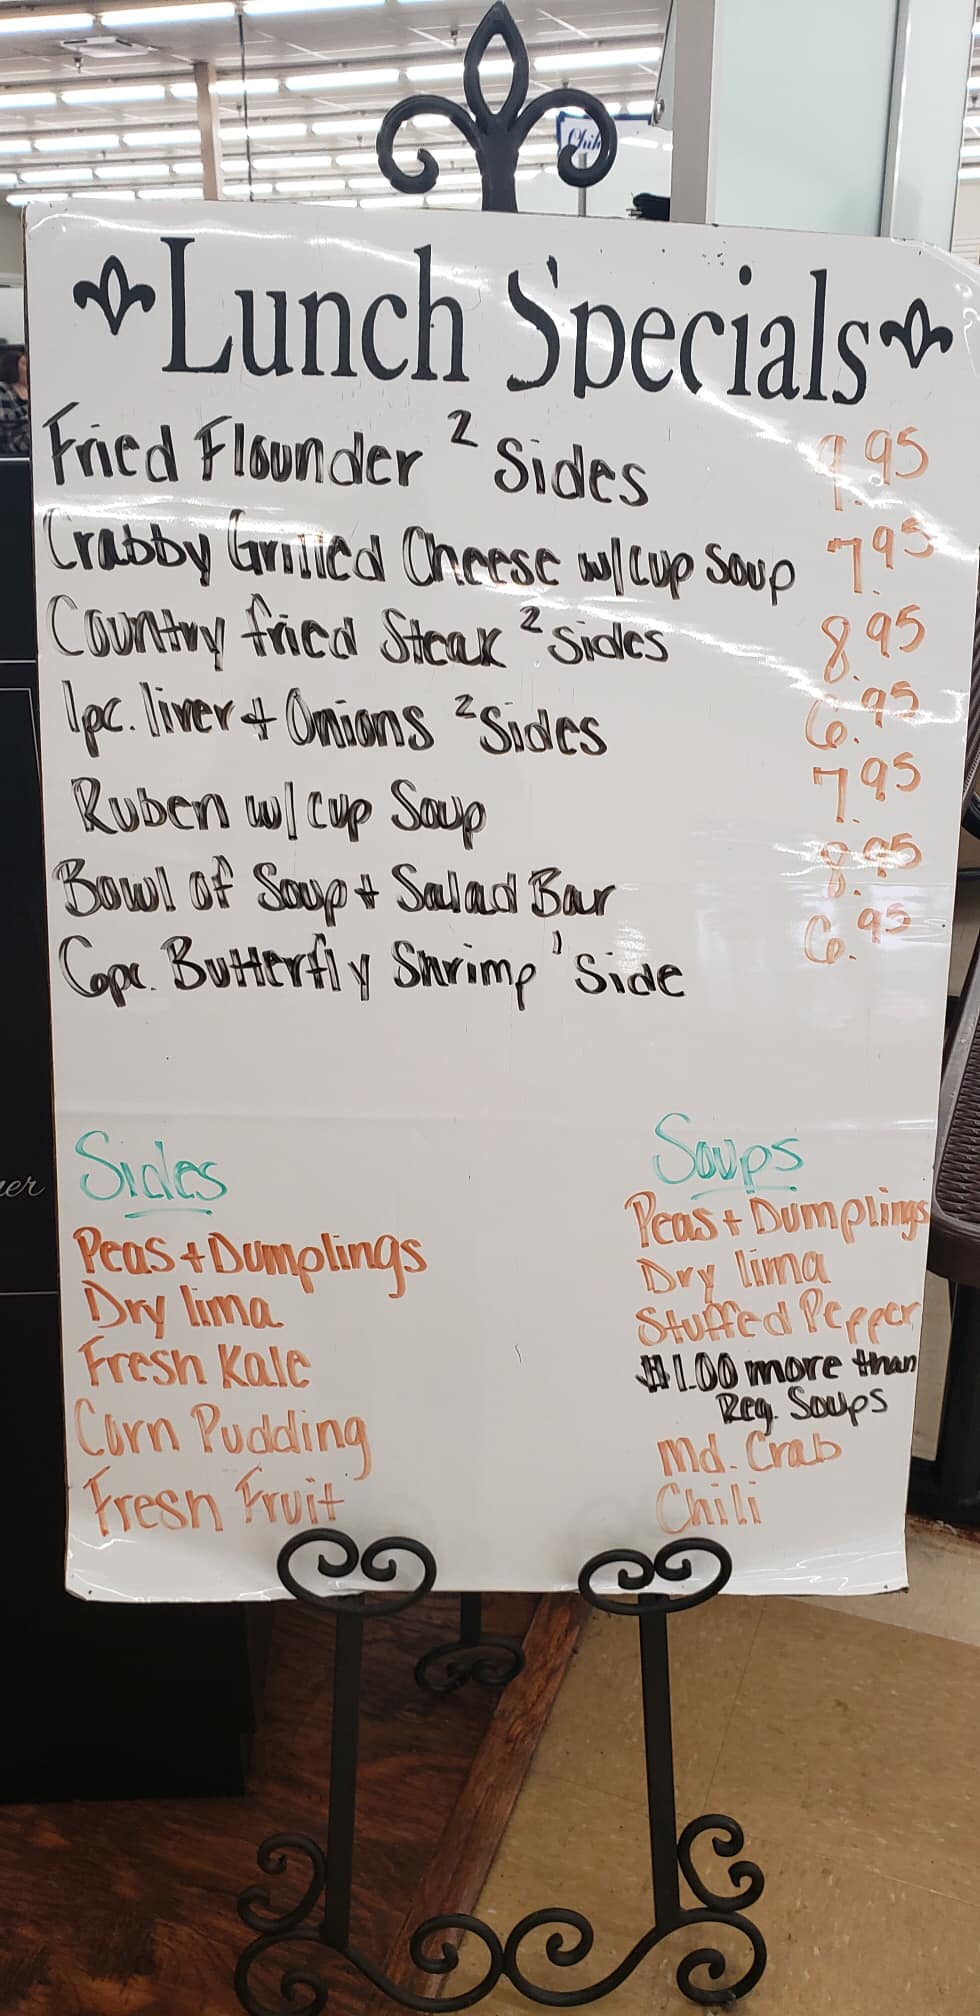 Chih
Lunch Specials
Fried Flounder 2 Sides 9.95
Crabby Grilled Cheese w/cup Soup 7.95
Country fried Steak 2 Sides 8.95
1pc. liver + Onions 2 Sides 6.95
Ruben w/cup Soup 7.95
Bowl of Soup + Salad Bar 8.95
6pc. Butterfly Shrimp 1 Side 6.95
Sides
Peas + Dumplings
Dry lima
Fresh Kale
Corn Pudding
Fresh Fruit
Soups
Peas + Dumplings
Dry lima
Stuffed Pepper
$1.00 more than
Reg. Soups
Md. Crab
Chili
ner